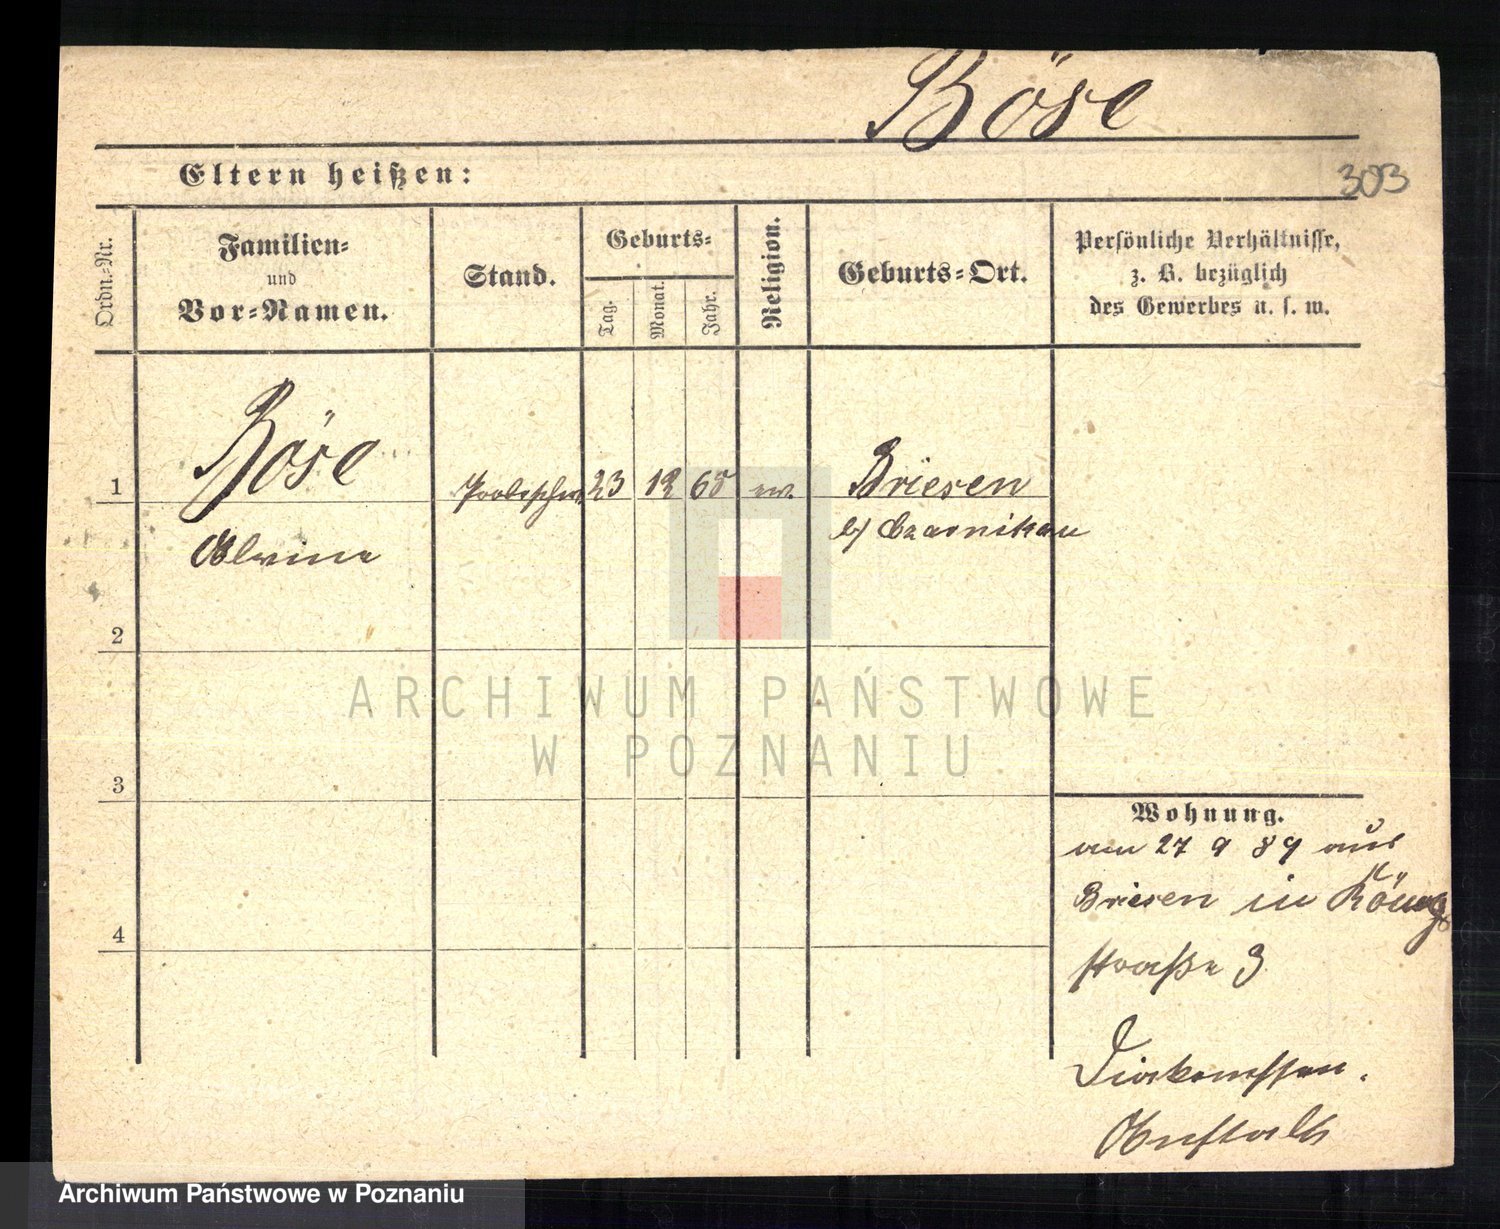 Böse
Eltern heißen:
303
Ordn.-Nr.
Familien-
und
Vor-Namen.
Stand.
Geburts-
Tag.
Monat.
Jahr.
Religion.
Geburts-Ort.
Persönliche Verhältnisse,
z. B. bezüglich
des Gewerbes u. s. w.
1
Böse
Alwine
Probeschw.
23
12
68
ev.
Briesen
b/ Czarnikau
2
3
4
Wohnung.
am 27 9 89 aus
Briesen in König
straße 3
Diakonissen.
Anstalt
ARCHIWUM PAŃSTWOWE
W POZNANIU
Archiwum Państwowe w Poznaniu